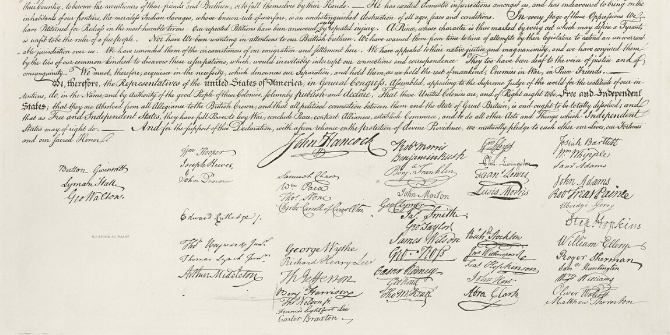 thus Country, to become the executioners of their friends and Brethren, or to fall themselves by their Hands. — He has excited domestic insurrections amongst us, and has endeavoured to bring on the
inhabitants of our frontiers, the merciless Indian Savages, whose known rule of warfare, is an undistinguished destruction of all ages, sexes and conditions. In every stage of these Oppressions We
have Petitioned for Redress in the most humble terms: Our repeated Petitions have been answered only by repeated injury. A Prince, whose character is thus marked by every act which may define a Tyrant,
is unfit to be the ruler of a free people. Nor have We been wanting in attentions to our Brittish brethren. We have warned them from time to time of attempts by their legislature to extend an unwarrantable
jurisdiction over us. We have reminded them of the circumstances of our emigration and settlement here. We have appealed to their native justice and magnanimity, and we have conjured them
by the ties of our common kindred to disavow these usurpations, which, would inevitably interrupt our connections and correspondence. They too have been deaf to the voice of justice and of
consanguinity. We must, therefore, acquiesce in the necessity, which denounces our Separation, and hold them, as we hold the rest of mankind, Enemies in War, in Peace Friends.
We, therefore, the Representatives of the united States of America, in General Congress, Assembled, appealing to the Supreme Judge of the world for the rectitude of our in-
tentions, do, in the Name, and by Authority of the good People of these Colonies, solemnly publish and declare, That these United Colonies are, and of Right ought to be Free and Independent
States; that they are Absolved from all Allegiance to the British Crown, and that all political connection between them and the State of Great Britain, is and ought to be totally dissolved; and
that as Free and Independent States, they have full Power to levy War, conclude Peace, contract Alliances, establish Commerce, and to do all other Acts and Things which Independent
States may of right do. — And for the support of this Declaration, with a firm reliance on the protection of divine Providence, we mutually pledge to each other our Lives, our Fortunes
and our sacred Honor.
John Hancock
Button Gwinnett
Lyman Hall
Geo Walton.
Wm Hooper
Joseph Hewes,
John Penn
Edward Rutledge /.
Thos Heyward Junr.
Thomas Lynch Junr.
Arthur Middleton
Samuel Chase
Wm Paca
Thos Stone
Charles Carroll of Carrollton
George Wythe
Richard Henry Lee
Th Jefferson
Benj Harrison
Thos Nelson jr.
Francis Lightfoot Lee
Carter Braxton
Robt Morris
Benjamin Rush
Benj. Franklin
John Morton
Geo Clymer
Jas. Smith
Geo. Taylor
James Wilson
Geo. Ross
Caesar Rodney
Geo Read
Tho M:Kean
Wm Floyd
Phil. Livingston
Frans. Lewis
Lewis Morris
Richd. Stockton
Jno Witherspoon
Fras. Hopkinson
John Hart
Abra Clark
Josiah Bartlett
Wm Whipple
Saml Adams
John Adams
Robt Treat Paine
Elbridge Gerry
Step. Hopkins
William Ellery
Roger Sherman
Saml Huntington
Wm Williams
Oliver Wolcott
Matthew Thornton